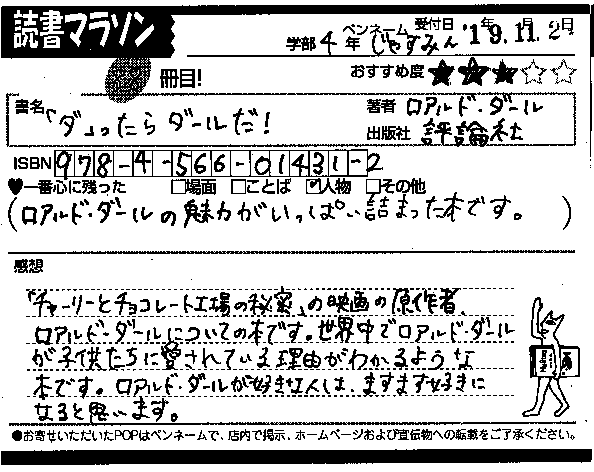 読書マラソン
学部 4年 ペンネーム じゃすみん 受付日 '19年11月2日
冊目! おすすめ度 ★★★☆☆
書名 「ダ」ったらダールだ! 著者 ロアルド・ダール
出版社 評論社
ISBN 978-4-566-01431-2
♥一番心に残った □場面 □ことば ☑人物 □その他
(ロアルド・ダールの魅力がいっぱい詰まった本です。)
感想
「チャーリーとチョコレート工場の秘密」の映画の原作者、
ロアルド・ダールについての本です。世界中でロアルド・ダール
が子供たちに愛されている理由がわかるような
本です。ロアルド・ダールが好きな人は、ますます好きに
なると思います。
●お寄せいただいたPOPはペンネームで、店内で掲示、ホームページおよび宣伝物への転載をご了承ください。